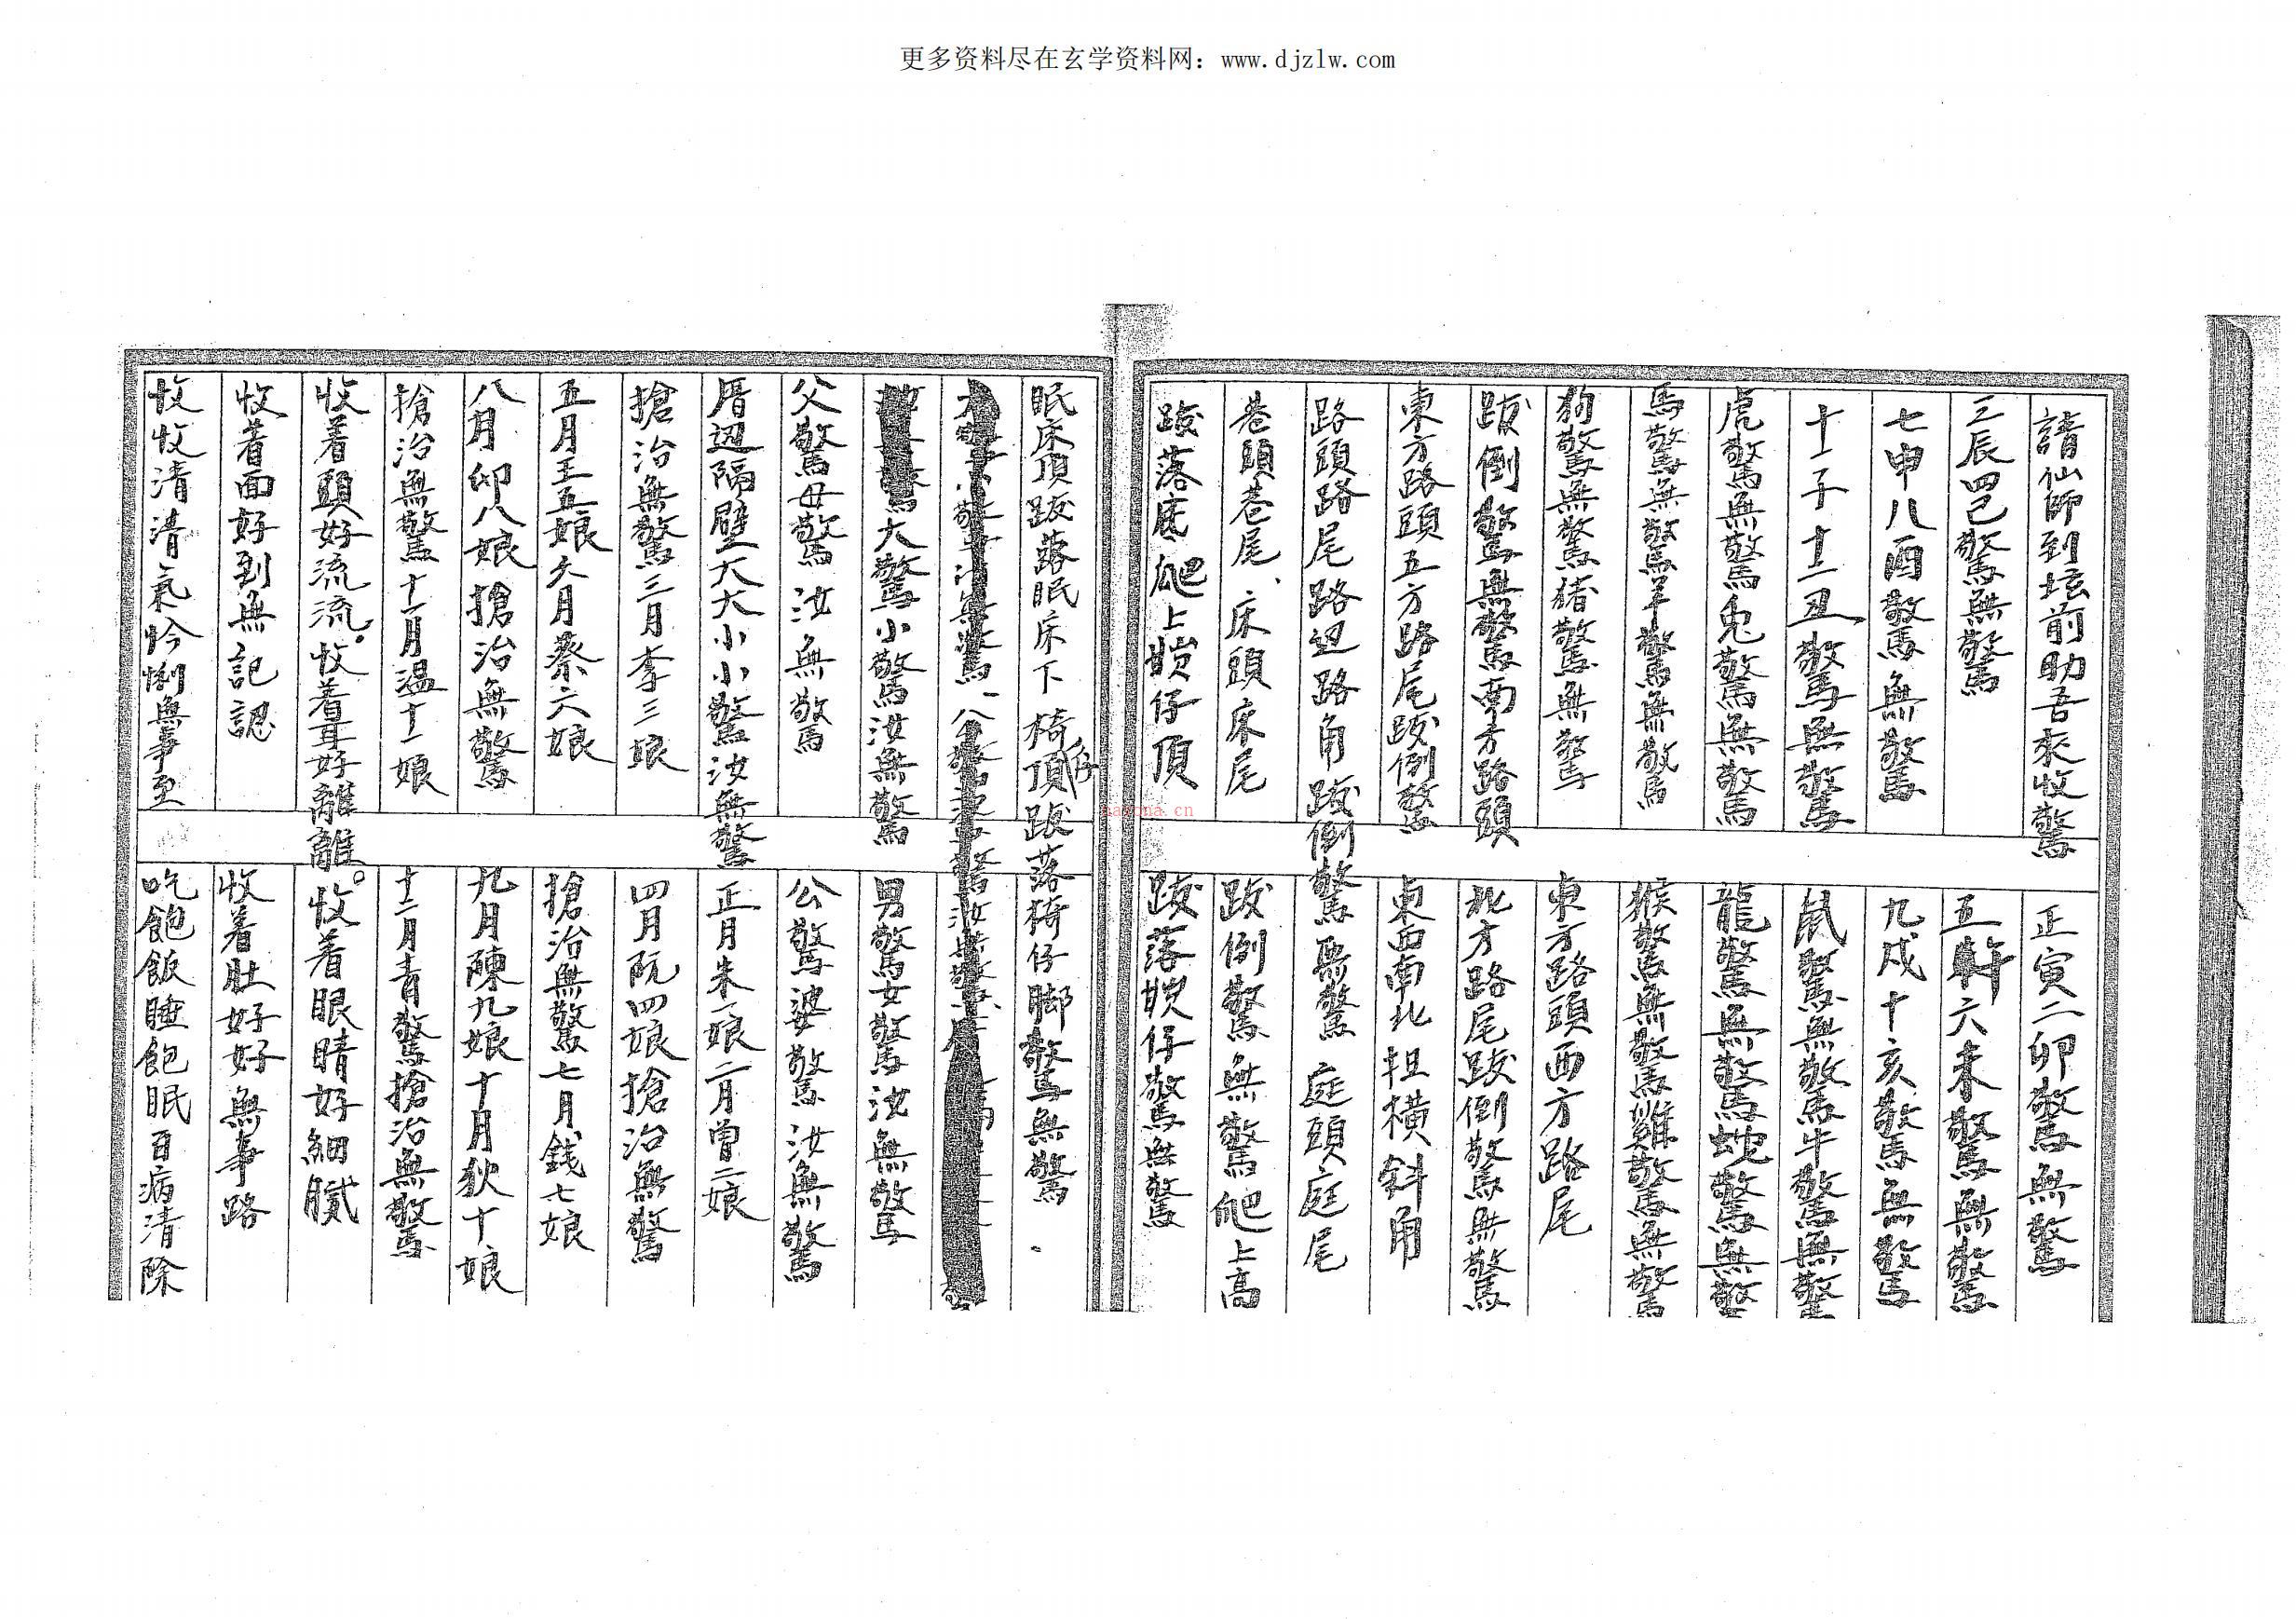 更多资料尽在玄学资料网：www.djzlw.com
請仙師到坛前助吾來收驚 正寅二卯驚無驚
三辰四巳驚無驚 五 六未驚無驚
七申八酉驚無驚 九戌十亥驚無驚
十一子十二丑驚無驚 鼠驚無驚牛驚無驚
虎驚無驚兔驚無驚 龍驚無驚蛇驚無驚
馬驚無驚羊驚無驚 猴驚無驚雞驚無驚
狗驚無驚猪驚無驚 東方路頭西方路尾
跋倒驚無驚南方路頭 北方路尾跋倒驚無驚
東方路頭五方路尾跋倒驚 東西南北担橫斜角
路頭路尾路边路角跋倒驚無驚 庭頭庭尾
巷頭巷尾、床頭床尾 跋倒驚無驚爬上高
跋落底爬上 仔頂 跋落 仔驚無驚
眠床頂跋落眠床下椅仔頂跋落椅仔脚驚無驚
大驚小驚汝無驚男驚女驚汝無驚
父驚母驚汝無驚 公驚婆驚汝無驚
厝边隔壁大大小小驚汝無驚 正月朱一娘二月曾二娘
搶治無驚三月李三娘 四月阮四娘搶治無驚
五月王五娘六月蔡六娘 搶治無驚七月錢七娘
八月卯八娘搶治無驚 九月陳九娘十月狄十娘
搶治無驚十一月温十一娘 十二月青驚搶治無驚
收着頭好流流。收着耳好離離。收着眼睛好細膩
收着面好到無記認 收着肚好好無事路
收收清清氣怜悧無事至 吃飽飯睡飽眠百病清除
nayona.cn